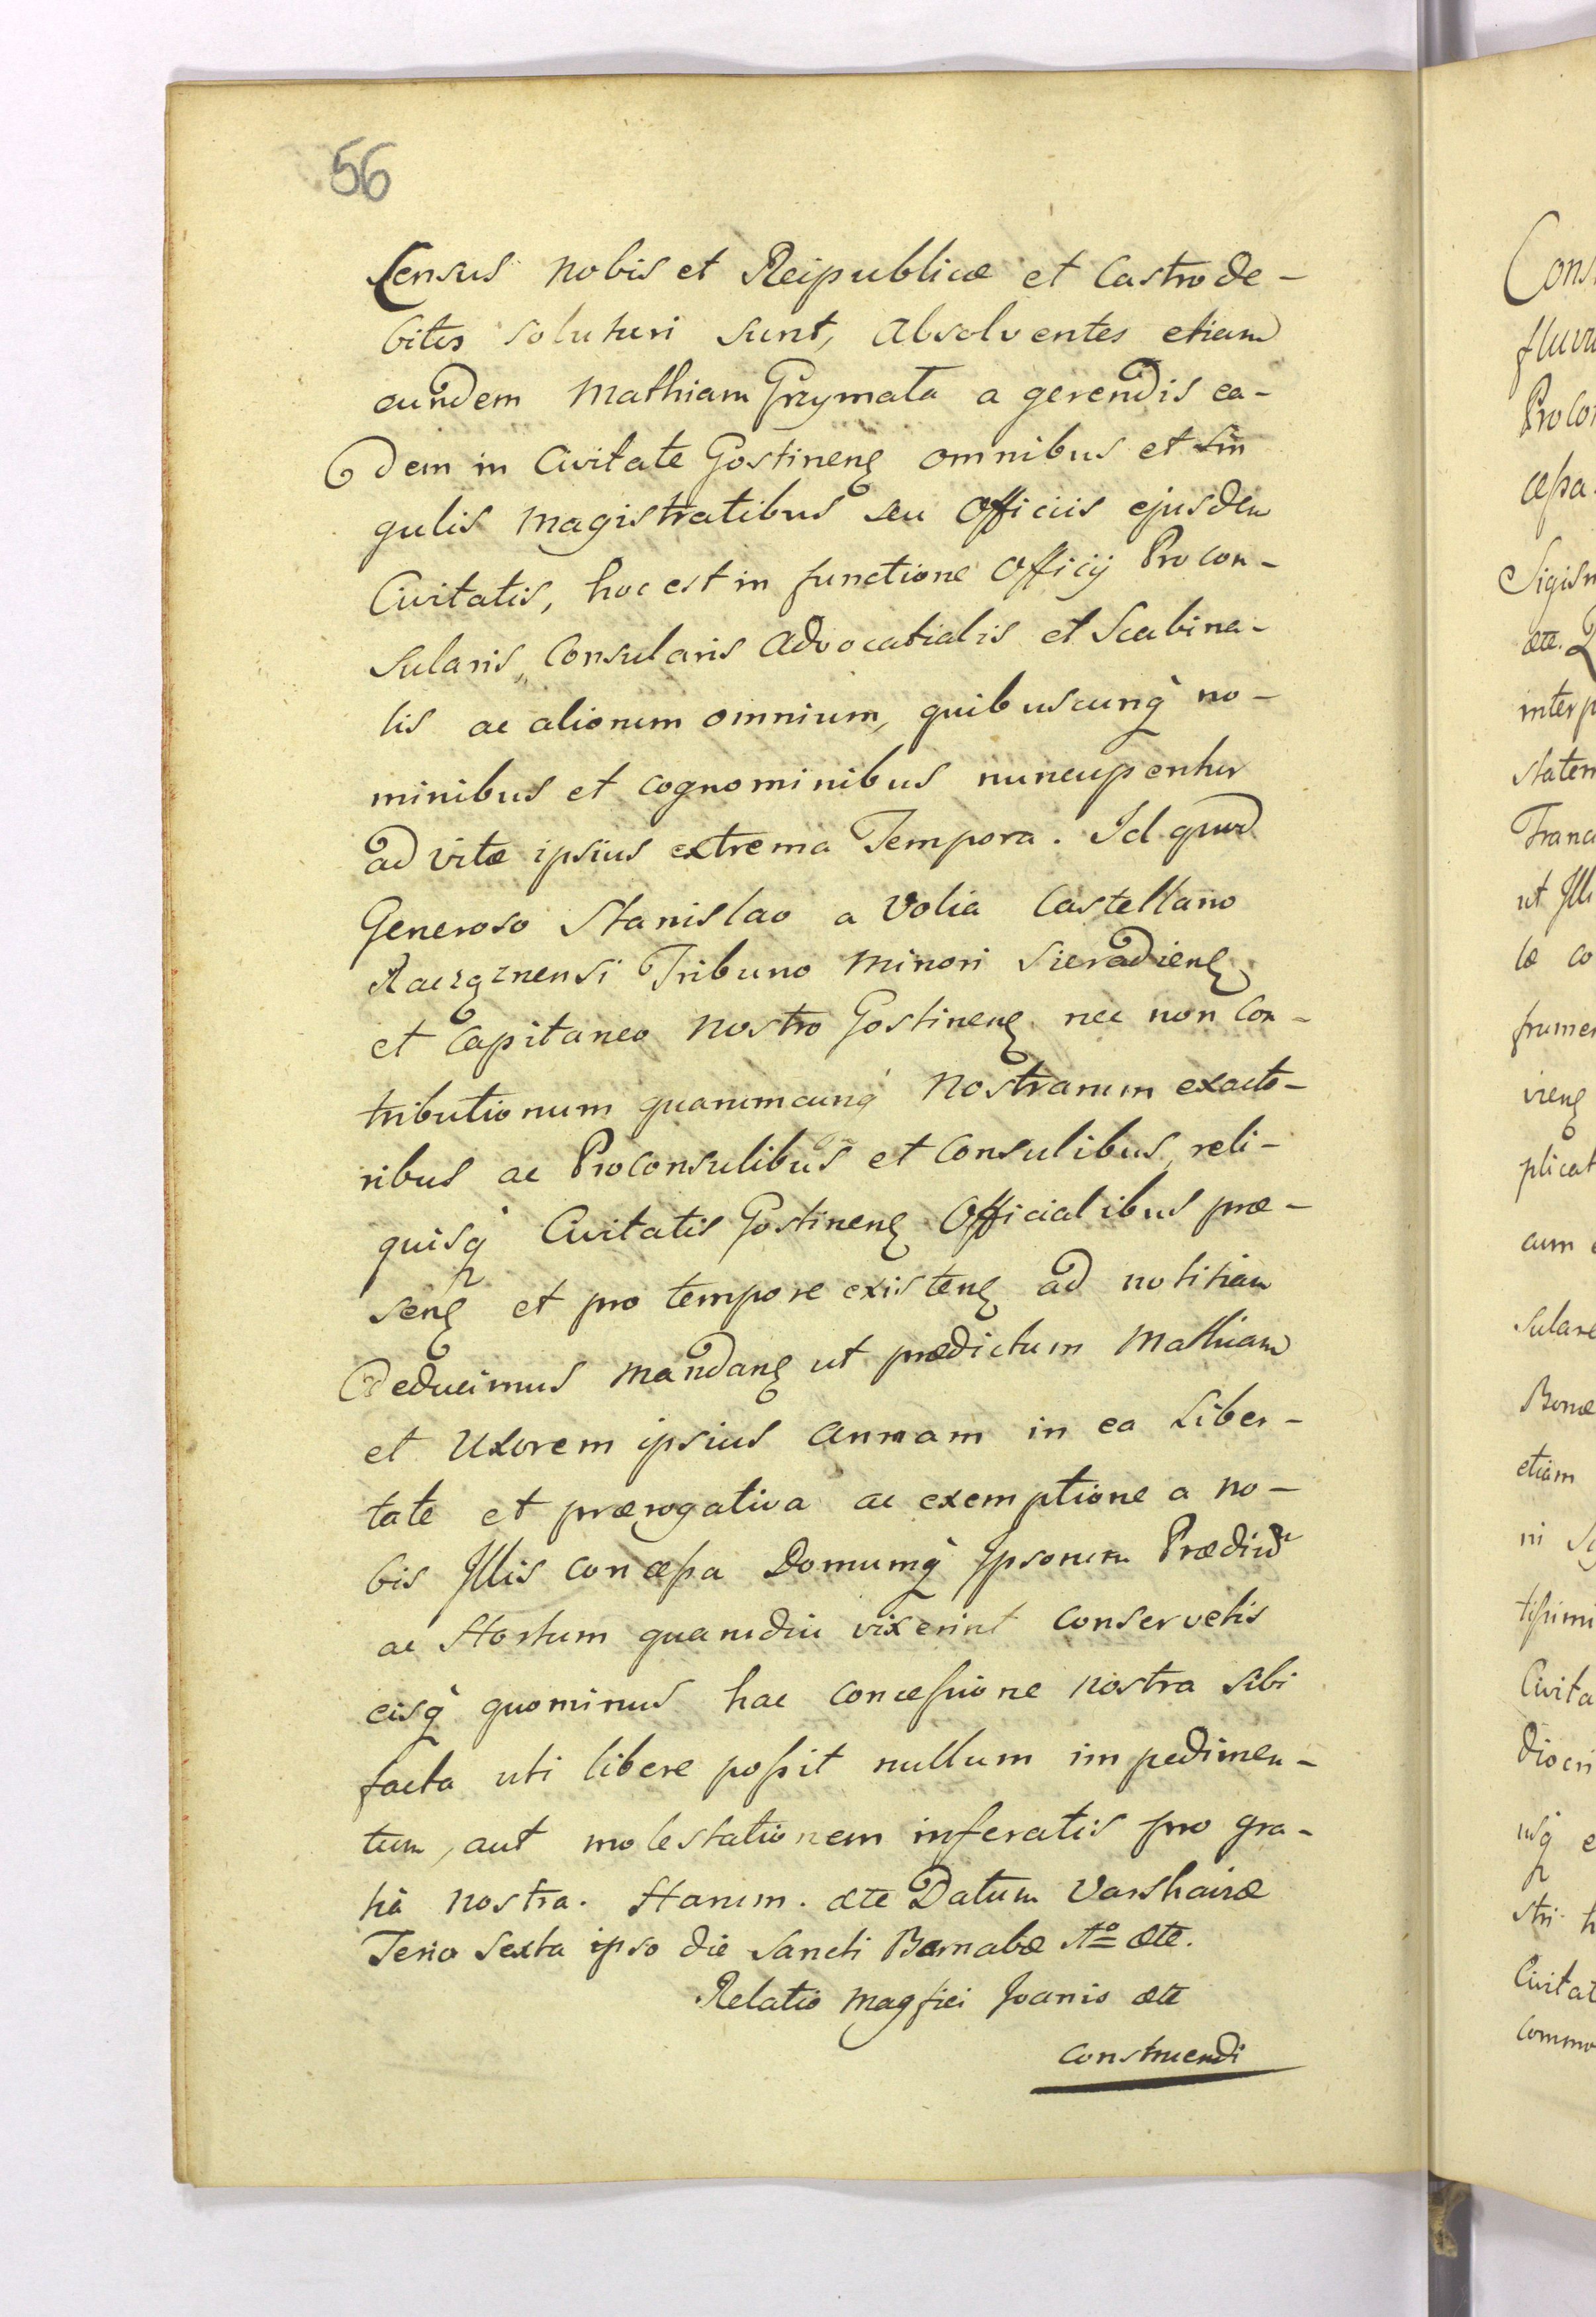 56
Census nobis et Reipublicæ et Castro de-
bitos soluturi sunt, absolventes etiam
eundem Mathiam Grzymala a gerendis ea-
dem in Civitate Gostinenȝ omnibus et sin
gulis magistratibus seu officiis ejusdem
Civitatis, hoc est in functione officij Procon-
sularis, Consularis advocatialis et Scabina-
lis ac aliorum omnium, quibuscunq̀ no-
minibus et cognominibus nuncupentur
ad vitæ ipsius extrema Tempora. Id quod
Generoso Stanislao a Volia Castellano
Tribuno minori Sieradienȝ
et Capitaneo nostro Gostinenȝ nec non Con-
tributionum quarumcunq̀ nostrarum exacto-
ribus ac Proconsulibus et Consulibus, reli-
quisq̀ Civitatis Gostinenȝ officialibus præ-
senȝ et pro tempore existenȝ ad notitiam
deducimus mandanȝ ut prædictum Mathiam
et Uxorem ipsius Annam in ea Liber-
tate et prærogativa ac exemptione a no-
bis Illis conceßa Domumq̀ Ipsorum Prædiu
ac Hortum quamdiu vixerint conservetis
eisq̀ quominus hac conceßione nostra sibi
facta uti libere poßit nullum impedimen-
tum, aut molestationem inferatis pro gra-
tià nostra. Harum. ætc Datum Varshaviæ
Feria sexta ipso die Sancti Barnabæ Aº ætc.
Relatio magfici Joanis ætc
Construendi
Cons
fluvi
Proco
ceßa
Sigism
ætc.
interp
statem
Franc
ut Illi
læ co
frumen
vienȝ
plicat
cum
sulare
Bonæ
etiam
ni
tißimi
Civita
diocri
usq̀ e
stri h
Civitat
commo